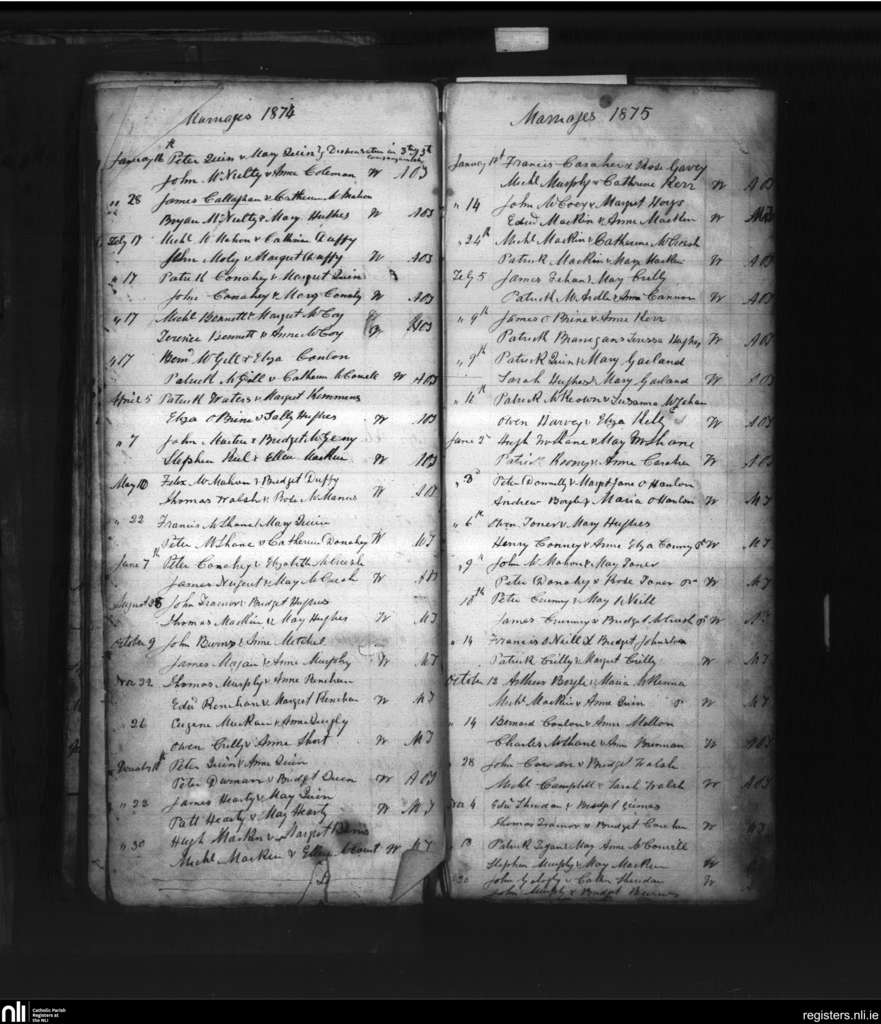 Marriages 1874
January 7th Peter Quinn & Mary Quinn Dispensation in 3rd consanguinity
John McNulty & Anne Coleman W AOB
" 28 James Callaghan & Catherine McMahon
Bryan McNulty & Mary Hughes W AOB
Feby 17 Michl McMahon & Catherine Duffy
John Moly & Margaret Duffy W AOB
" 17 Patrick Conahey & Margret Quinn
John Conahey & Mary Conaty W AOB
" 17 Michl Bennett & Margret McCoy
Terence Bennett & Anne McCoy W AOB
" 17 Bernd McGill & Eliza Conlon
Patrick McGill & Catherine W AOB
April 5 Patrick Waters & Margret Kimmons
Eliza O Brine & Sally Hughes W AOB
" 7 John Martin & Bridget McGeeny
Stephen Riel & Ellen Mackin W AOB
May 10 Felix McMahon & Bridget Duffy
Thomas Walsh & Rose McManus W AOB
" 22 Francis McShane & Mary Quinn
Peter McShane & Catherine Donahey W MT
June 7th Peter Conahey & Elizabeth McCreesh
James Nugent & Mary McCreesh W AOB
August 28 John Trainor & Bridget Hughes
Thomas Mackin & Mary Hughes W MT
October 9 John Burns & Anne Mitchel
James & Anne Murphy W MT
Nov 22 Thomas Murphy & Anne Renehan
Edwd Renehan & Margret Renehan W MT
" 26 Eugene & Anne Quigly
Owen Crilly & Anne Short W MT
Decemb 18th Peter Quinn & Anne Quinn
Peter & Bridget Quinn W AOB
" 22 James Hearty & Mary Quinn
Patt Hearty & Mary Hearty W MT
" 30 Hugh Mackin & Margret
Michl Mackin & Ellen W MT
Marriages 1875
January 12th Francis Caraher & Rose Garvey
Michl Murphy & Cathrine Kerr W AOB
" 14 John McCoey & Margret Hoys
Edwd Mackin & Anne Mackin W
" 24th Michl Mackin & Catherine McCreesh
Patrick Mackin & Mary Mackin W AOB
Feby 5 James Fehan & Mary Crilly
Patrick McArdle & Anne Cannon W AOB
" 9th James O Brine & Anne Kerr
Patrick Branegan & Teressa Hughes W AOB
" 9th Patrick Quinn & Mary Garland
Sarah Hughes & Mary Garland W AOB
" 11th Patrick McKeown & Susanna McGahan
Owen Harvey & Eliza Kelly W AOB
June 2 Hugh McShane & Mary McShane
Patrick Rooney & Anne Caraher W AOB
" 3d Peter Donnelly & Margt Jane O Hanlon
Andrew Boyle & Maria O Hanlon W MT
" 6th Owen Toner & Mary Hughes
Henry Conney & Anne Eliza Conney W MT
" 9th John McMahon & Mary Toner
Peter Donahey & Rose Toner W MT
10th Peter & Mary O Neill
James & Bridget McCreesh W
" 14 Francis O Neill & Bridget Johnston
Patrick Crilly & Margret Crilly W MT
October 12 Arthur Boyle & Maria McKenna
Michl Mackin & Anne Quinn W MT
" 14 Bernard Conlon & Anne Mallon
Charles McShane & Ann Brennan W AOB
" 28 John & Bridget Walsh
Michl Campbell & Sarah Walsh W AOB
Nov 4 Edwd Sheridan & Bridget
Thomas Trainor & Bridget W MT
Patrick & Mary Anne McConvill
Stephen Murphy & Mary Mackin W
30 John & Cathn Sheridan W
John Murphy & Bridget
nli
Catholic Parish
Registers at
the NLI
registers.nli.ie